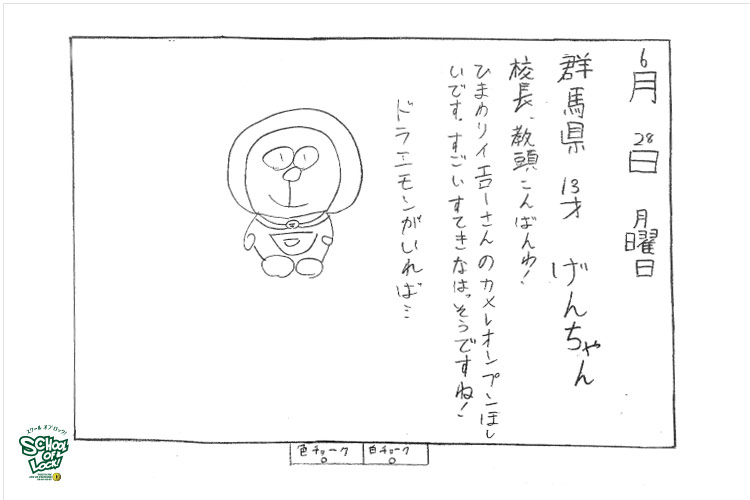 6月28日月曜日
群馬県 13才 げんちゃん
校長、教頭こんばんわ!
ひまわりイエローさんのカメレオンプンほし
いです。すごいすてきなはっそうですね!
ドラエモンがいれば…
色チョーク
白チョーク
スクール オブ ロック!
SCHOOL OF LOCK!